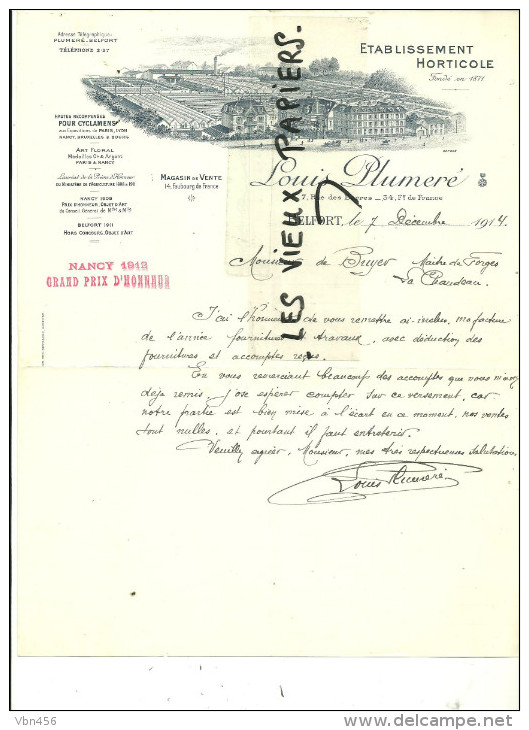 Adresse Télégraphique:
PLUMERÉ_BELFORT
TÉLÉPHONE 2.37
HAUTES RÉCOMPENSES
POUR CYCLAMENS
aux Expositions de PARIS, LYON
NANCY, BRUXELLES &
ART FLORAL
Médailles Or & Argent
PARIS & NANCY
Lauréat de la Prime d'Honneur
NANCY 1909
PRIX D'HONNEUR, OBJET D'ART
BELFORT 1911
HORS CONCOURS, OBJET D'ART
NANCY 1913
GRAND PRIX D'HONNEUR
ETABLISSEMENT
HORTICOLE
Fondé en 1871
MAGASIN DE VENTE
14, Faubourg de France
Louis Plumeré
7, Rue des Barres _ 34, Fg de France
BELFORT, le 7 Décembre 1914.
Monsieur de Buyer Maitre de Forges
La Chaudeau.
J'ai l'honneur de vous remettre ci-inclus, ma facture
de l'année fournitures et travaux, avec déduction des
fournitures et accomptes reçus.
En vous remerciant beaucoup des accomptes que vous m'avez
déjà remis, j'ose espérer compter sur ce versement, car
notre partie est bien mise à l'écart en ce moment, nos ventes
sont nulles, et pourtant il faut entretenir.
Veuillez agréer, Monsieur, mes très respectueuses salutations.
Louis Plumeré
LES VIEUX PAPIERS.
Vbn456
delcampe.net